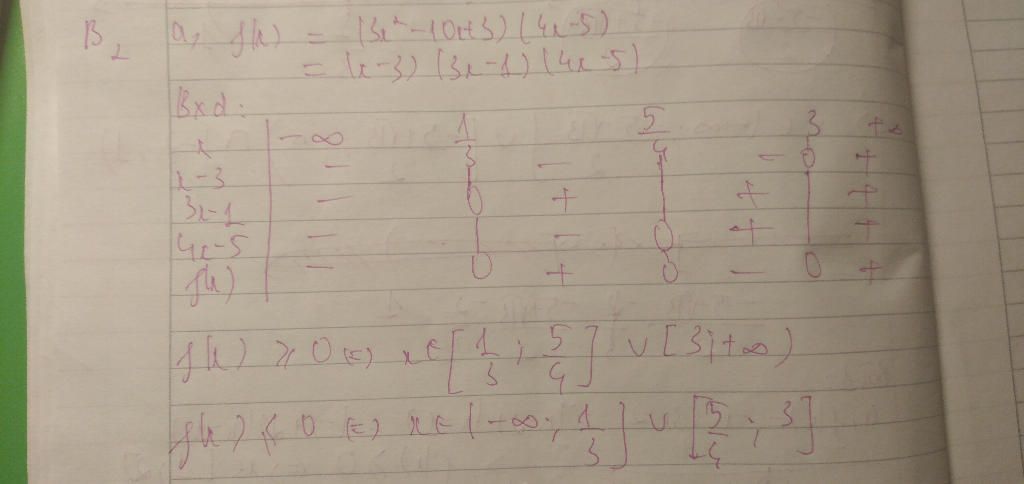 B2 a, f(x) = (3x² - 10x + 3) (4x - 5)
= (x - 3) (3x - 1) (4x - 5)
Bxd:
x | -∞ 1/3 5/4 3 +∞
x - 3 | - | - | - 0 +
3x - 1 | - 0 + | + | +
4x - 5 | - | - 0 + | +
f(x) | - 0 + 0 - 0 +
f(x) ≥ 0 <=> x ∈ [1/3 ; 5/4] ∪ [3; +∞)
f(x) ≤ 0 <=> x ∈ (-∞; 1/3] ∪ [5/4 ; 3]